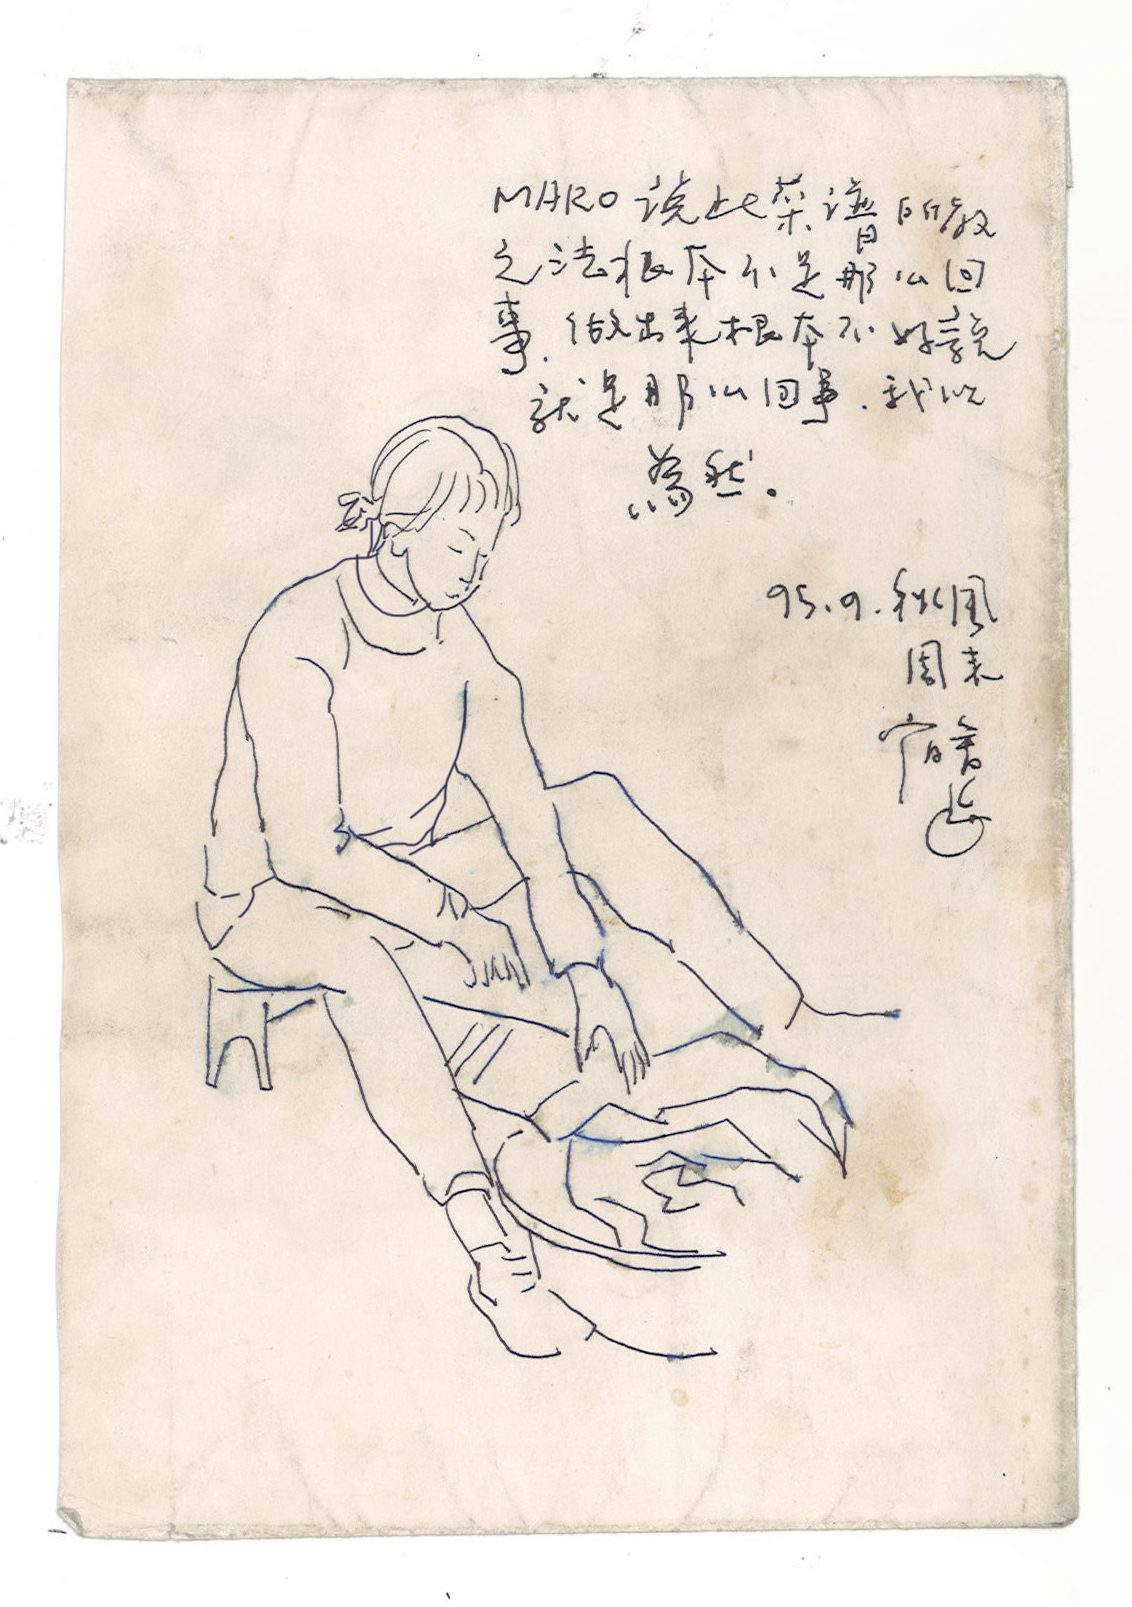 MARO说此菜谱所教
之法根本不是那么回
事.做出来根本不好說
就是那么回事.我以
為然。
95.9.秋風
周末
宵善